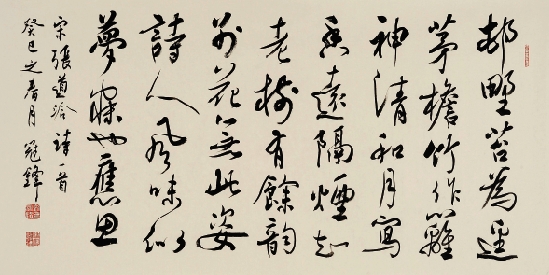 邨野苔為逕
茅檐竹作籬
神清和月寫
香遠隔煙知
老樹有餘韻
別花無此姿
詩人風味似
夢寐也應思
宋張道洽詩一首
癸巳之春月 鋒